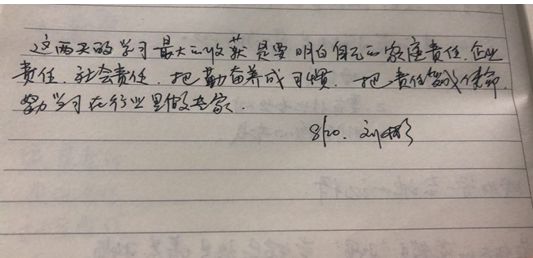 这两天的学习最大的收获是要明白自己的家庭责任.企业
责任.社会责任.把勤奋养成习惯.把责任变成使命.
努力学习在行业里做专家.
8/20. 刘